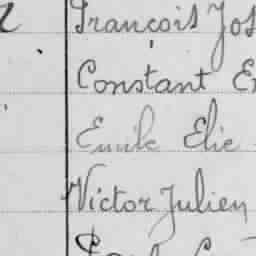 François Jos
Constant E
Emile Elie
Victor Julien